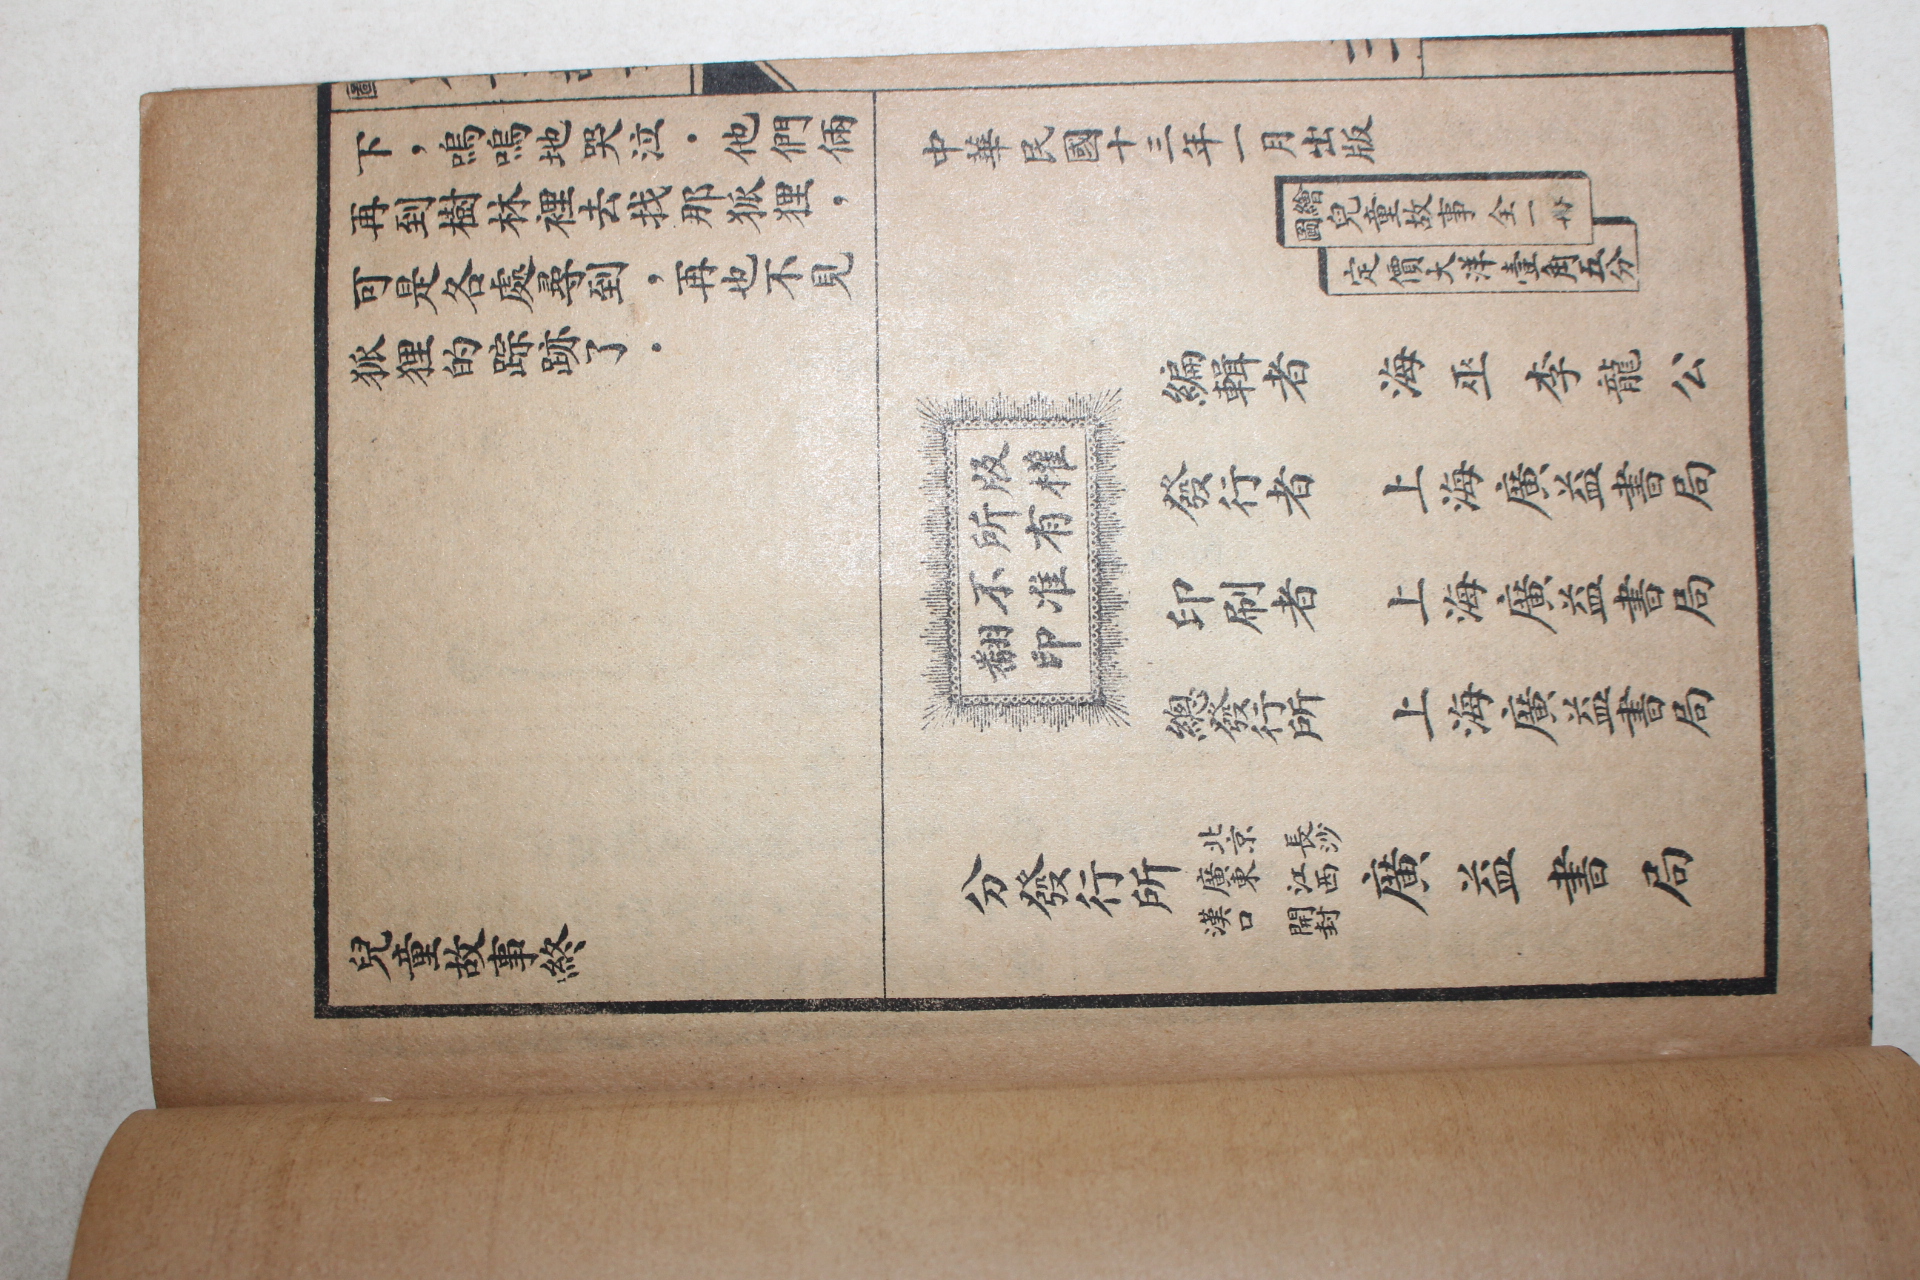 下，嗚嗚地哭泣．他們倆
再到樹林裡去找那狐狸，
可是各處尋到，再也不見
狐狸的踪跡了．
兒童故事終
中華民國十三年一月出版
繪圖兒童故事全一冊
定價大洋壹角五分
版權
所有
不准
翻印
編輯者 海巫李龍公
發行者 上海廣益書局
印刷者 上海廣益書局
總發行所 上海廣益書局
分發行所 北京 長沙 廣東 江西 漢口 開封 廣益書局